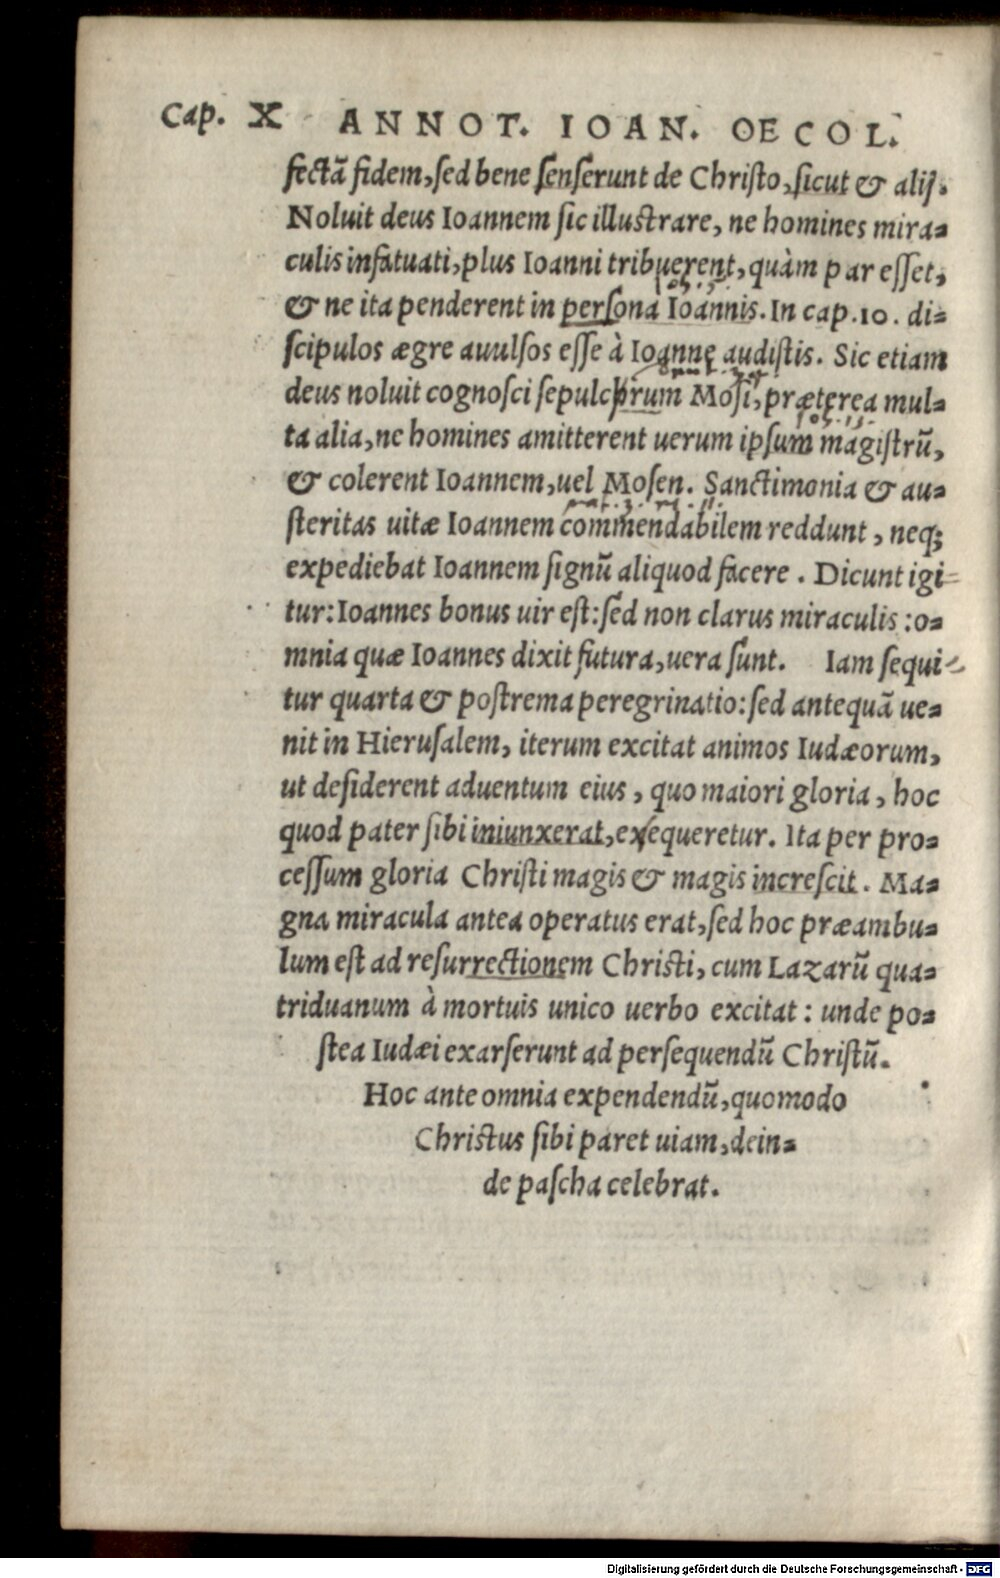 Cap. X ANNOT. IOAN. OECOL.
fectã fidem, sed bene senserunt de Christo, sicut & alij.
Noluit deus Ioannem sic illustrare, ne homines mira=
culis infatuati, plus Ioanni tribuerent, quàm par esset,
& ne ita penderent in persona Ioannis. In cap. 10. di=
scipulos ægre auulsos esse à Ioanne audistis. Sic etiam
deus noluit cognosci sepulchrum Mosi, præterea mul=
ta alia, ne homines amitterent uerum ipsum magistrũ,
& colerent Ioannem, uel Mosen. Sanctimonia & au=
steritas uitæ Ioannem commendabilem reddunt, neq;
expediebat Ioannem signũ aliquod facere. Dicunt igi=
tur: Ioannes bonus uir est: sed non clarus miraculis: o=
mnia quæ Ioannes dixit futura, uera sunt. Iam sequi=
tur quarta & postrema peregrinatio: sed antequã ue=
nit in Hierusalem, iterum excitat animos Iudæorum,
ut desiderent aduentum eius, quo maiori gloria, hoc
quod pater sibi iniunxerat, exequeretur. Ita per pro=
cessum gloria Christi magis & magis increscit. Ma=
gna miracula antea operatus erat, sed hoc præambu=
lum est ad resurrectionem Christi, cum Lazarũ qua=
triduanum à mortuis unico uerbo excitat: unde po=
stea Iudæi exarserunt ad persequendũ Christũ.
Hoc ante omnia expendendũ, quomodo
Christus sibi paret uiam, dein=
de pascha celebrat.
Digitalisierung gefördert durch die Deutsche Forschungsgemeinschaft - DFG